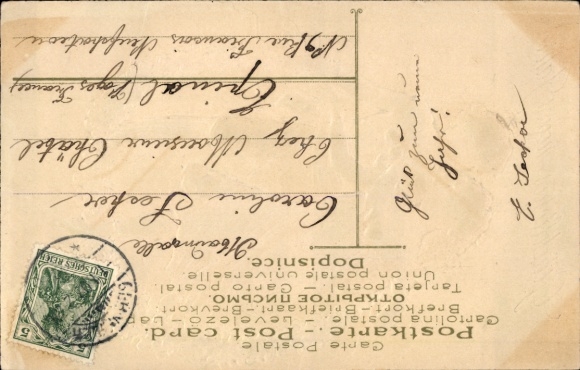 Carte Postale
Postkarte. - Post card.
Cartolina postale. - Levelező-Lap
Brefkort - Briefkaart - Brevkort.
ОТКРЫТОЕ ПИСЬМО.
Tarjeta postal. - Carto postal.
Union postale universelle.
Dopisnice.
DEUTSCHES REICH
5 5
Caroline
Chez Monsieur Châtel
Epinal (Vosges France)
Nº 9 Rue François Neufchateau
Glück zum neuen
Jahr!